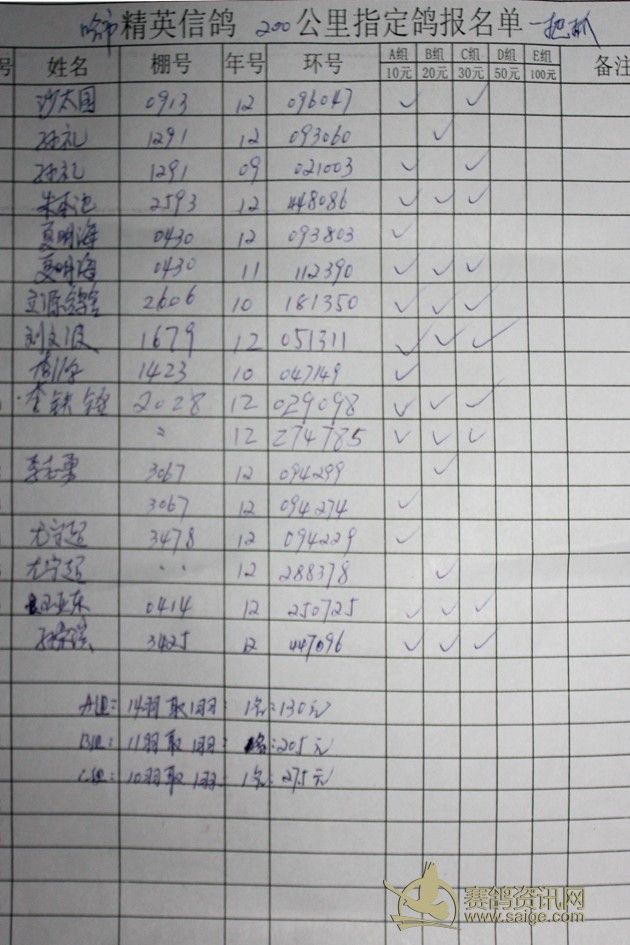 哈市精英信鸽 200公里指定鸽报名单 一把抓
号 姓名 棚号 年号 环号 A组 B组 C组 D组 E组 备注
10元 20元 30元 50元 100元
沙太国 0913 12 096047 ✓ ✓
孙礼 1291 12 093060 ✓
孙礼 1291 09 021003 ✓ ✓
朱 2593 12 448086 ✓ ✓ ✓
夏明海 0430 12 093803 ✓
夏明海 0430 11 112390 ✓ ✓ ✓
文源鸽舍 2606 10 181350 ✓ ✓ ✓
刘文波 1679 12 051311 ✓ ✓ ✓
1423 10 047149 ✓
李铁锋 2028 12 029098 ✓ ✓ ✓
〃 12 274785 ✓ ✓ ✓
李志勇 3067 12 094299 ✓
3067 12 094274 ✓
尤守超 3478 12 094229 ✓
尤守超 ·· 12 288378 ✓
亚东 0414 12 250725 ✓ ✓ ✓
孙 3425 12 447096 ✓ ✓ ✓
A组: 14羽取1羽: 1名:130元
B组: 11羽取1羽: 1名:205元
C组: 10羽取1羽: 1名:275元
赛鸽资讯网
www.saige.com